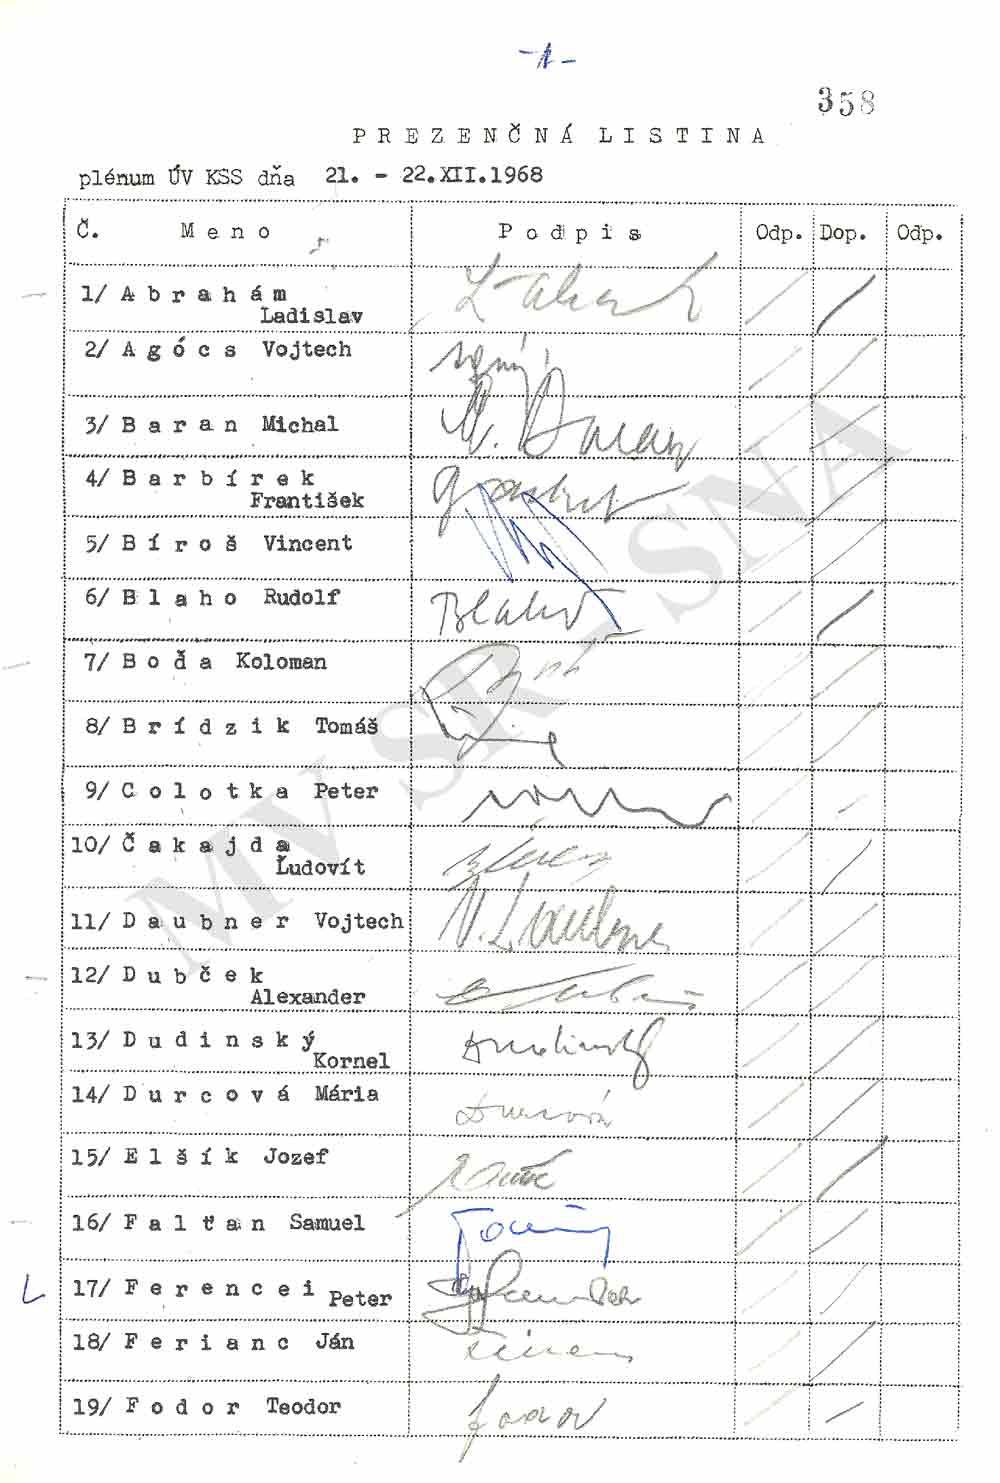 -1-
358
PREZENČNÁ LISTINA
plénum ÚV KSS dňa 21. - 22.XII.1968
Č. Meno Podpis Odp. Dop. Odp.
1/ Abrahám
Ladislav
2/ Agócs Vojtech
3/ Baran Michal
M. Baran
4/ Barbírek
František
5/ Bíroš Vincent
6/ Blaho Rudolf Blaho
7/ Boďa Koloman
8/ Brídzik Tomáš
9/ Colotka Peter
10/ Čakajda
Ľudovít
11/ Daubner Vojtech V. Daubner
12/ Dubček
Alexander
13/ Dudinský
Kornel Dudinský
14/ Durcová Mária Durcová
15/ Elšík Jozef
16/ Falťan Samuel
17/ Ferencei
Peter
18/ Ferianc Ján
19/ Fodor Teodor Fodor
MV SR - SNA